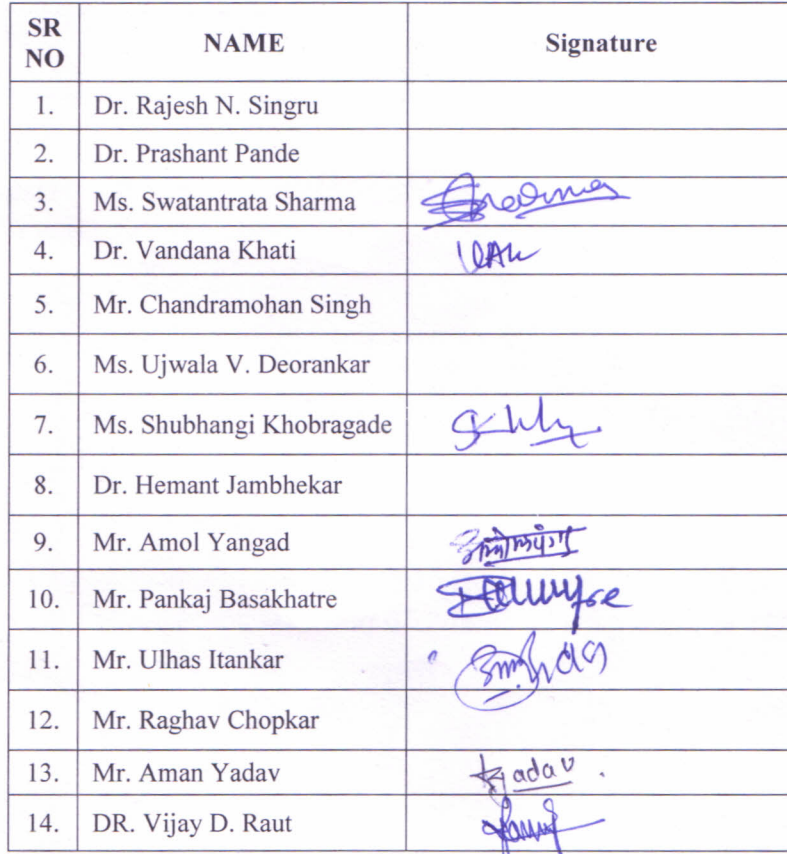 SR NO NAME Signature
1. Dr. Rajesh N. Singru
2. Dr. Prashant Pande
3. Ms. Swatantrata Sharma
4. Dr. Vandana Khati
5. Mr. Chandramohan Singh
6. Ms. Ujwala V. Deorankar
7. Ms. Shubhangi Khobragade
8. Dr. Hemant Jambhekar
9. Mr. Amol Yangad
10. Mr. Pankaj Basakhatre
11. Mr. Ulhas Itankar
12. Mr. Raghav Chopkar
13. Mr. Aman Yadav
14. DR. Vijay D. Raut